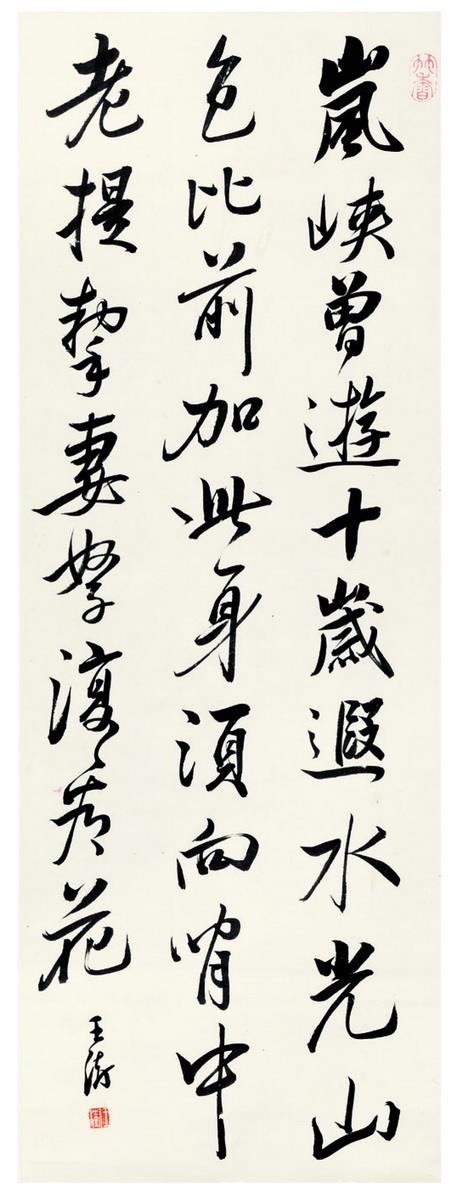 嵐峽曾遊十歲遐水光山
色比前加此身須向閒中
老提挈妻孥復看花